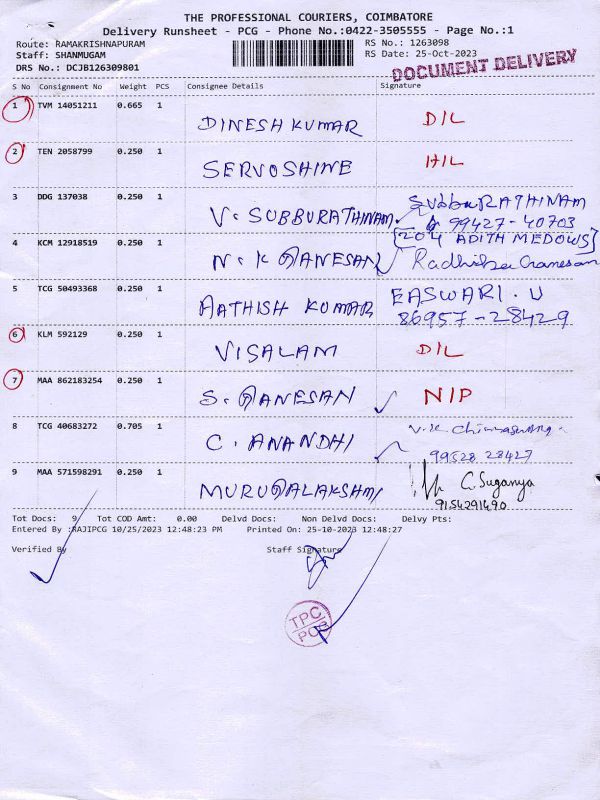 THE PROFESSIONAL COURIERS, COIMBATORE
Delivery Runsheet - PCG - Phone No.:0422-3505555 - Page No.:1
Route: RAMAKRISHNAPURAM RS No.: 1263098
Staff: SHANMUGAM RS Date: 25-Oct-2023
DRS No.: DCJB126309801 DOCUMENT DELIVERY
S No Consignment No Weight PCS Consignee Details Signature
1 TVM 14051211 0.665 1 DINESH KUMAR D/L
2 TEN 2058799 0.250 1 SERVOSHINE H/L
3 DDG 137038 0.250 1 V. SUBBURATHINAM SubbuRATHINAM
99427-40703
[204 ADITH MEDOWS]
4 KCM 12918519 0.250 1 N. K GANESAN Radhika Ganesan
5 TCG 50493368 0.250 1 AATHISH KUMAR EASWARI. U
86957-28429
6 KLM 592129 0.250 1 VISALAM D/L
7 MAA 862183254 0.250 1 S. GANESAN N/P
8 TCG 40683272 0.705 1 C. ANANDHI V.K
99528 28427
9 MAA 571598291 0.250 1 MURUGALAKSHMI C. Suganya
9154291490
Tot Docs: 9 Tot COD Amt: 0.00 Delvd Docs: Non Delvd Docs: Delvy Pts:
Entered By :RAJIPCG 10/25/2023 12:48:23 PM Printed On: 25-10-2023 12:48:27
Verified By Staff Signature
TPC
PCG